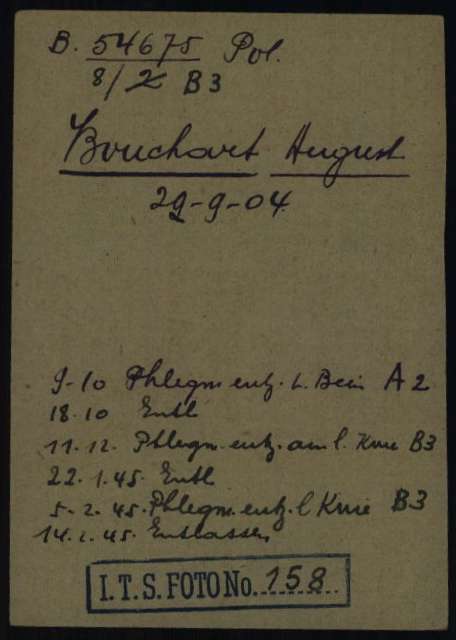 B. 54675 Pol.
8/2 B3
Bouchart August
29-9-04.
9-10 Phlegm. entz. L. Bein A2
18.10 Entl
11.12. Phlegm. entz. am l. Knie B3
22.1.45. Entl
5.2.45. Phlegm. entz. l Knie B3
14.2.45. Entlassen
I.T.S. FOTO No. 158